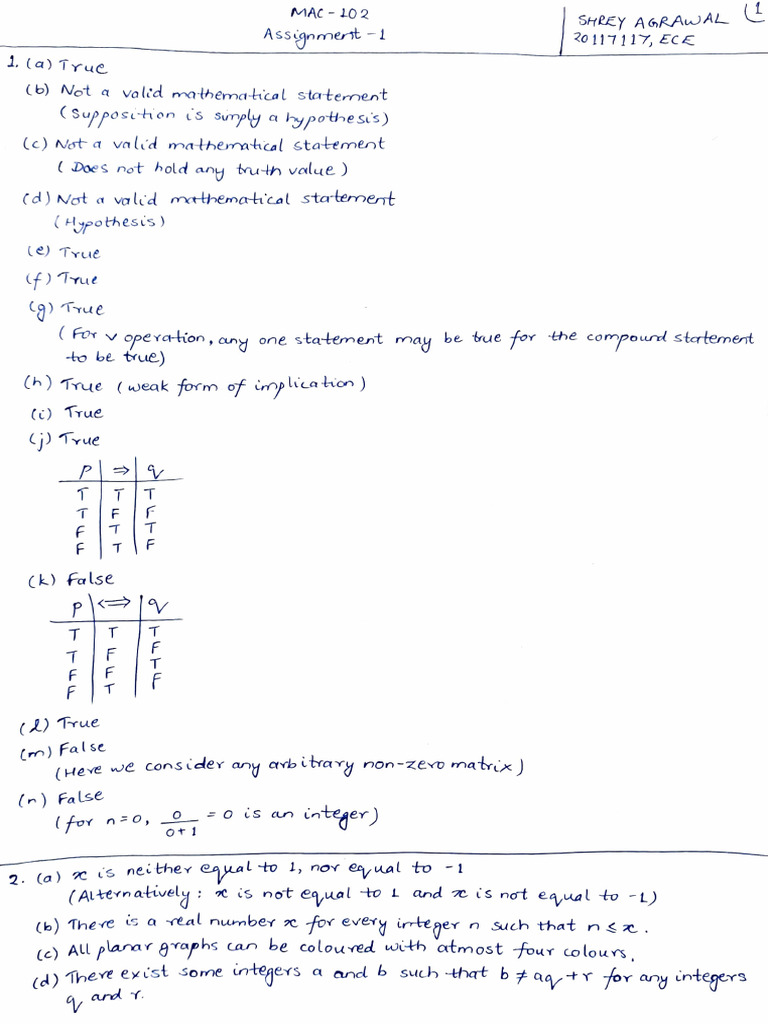 MAC-102
Assignment-1
SHREY AGRAWAL
20117117, ECE
1
1. (a) True
(b) Not a valid mathematical statement
(Supposition is simply a hypothesis)
(c) Not a valid mathematical statement
(Does not hold any truth value)
(d) Not a valid mathematical statement
(Hypothesis)
(e) True
(f) True
(g) True
(For ∨ operation, any one statement may be true for the compound statement
to be true)
(h) True (weak form of implication)
(i) True
(j) True
P | ⇒ | q
T | T | T
T | F | F
F | T | T
F | T | F
(k) False
P | <=> | q
T | T | T
T | F | F
F | F | T
F | T | F
(l) True
(m) False
(Here we consider any arbitrary non-zero matrix)
(n) False
(for n=0, 0/(0+1) = 0 is an integer)
2. (a) x is neither equal to 1, nor equal to -1
(Alternatively: x is not equal to 1 and x is not equal to -1)
(b) There is a real number x for every integer n such that n ≤ x.
(c) All planar graphs can be coloured with atmost four colours.
(d) There exist some integers a and b such that b ≠ aq + r for any integers
q and r.